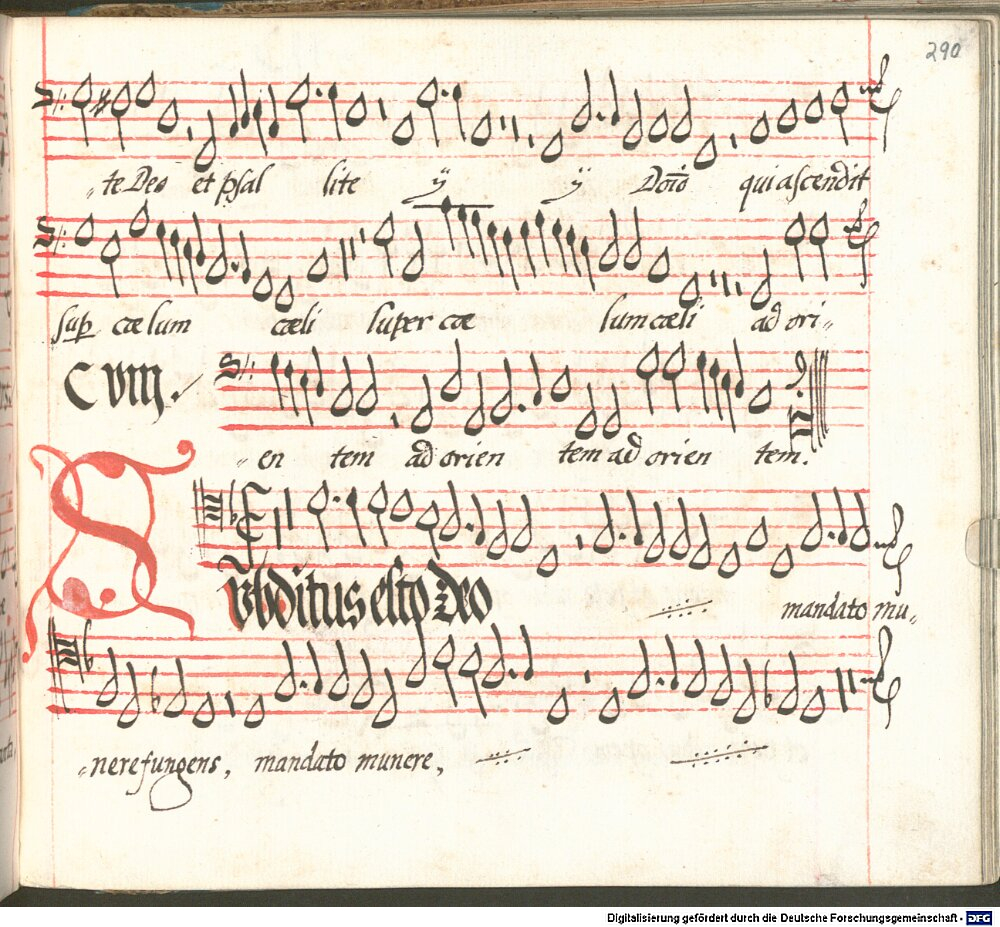 290
„te Deo et psal lite ÿ ÿ Doïo qui ascendit
sup cœlum cœli super cœ lum cœli ad ori„
CVM.
„en tem ad orien tem ad orien tem.
Subditus esto Deo mandato mu„
„nere fungens, mandato munere,
Digitalisierung gefördert durch die Deutsche Forschungsgemeinschaft - DFG